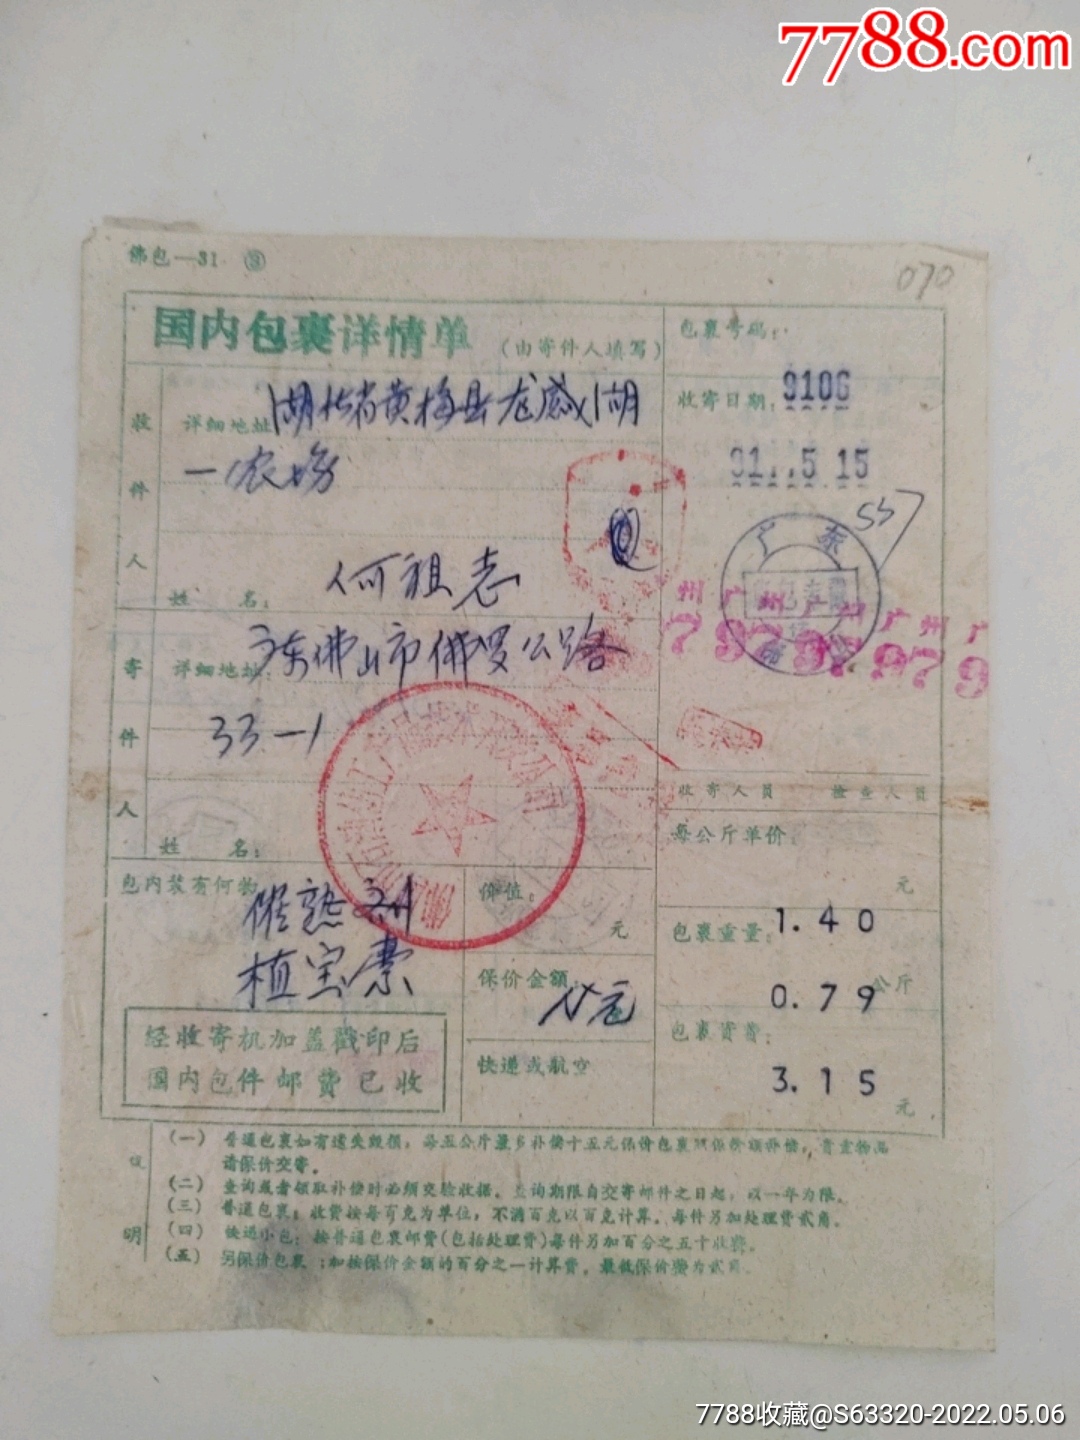 7788.com
佛包—31 ③
070
国内包裹详情单
(由寄件人填写)
包裹号码:
收件人
详细地址
湖北省黄梅县龙感湖
一农场
姓 名:
何祖志
收寄日期:
9106
91..5 15
557
广东
州 广 州 广 州 广 州 广
797979
寄件人
详细地址:
广东佛山市佛罗公路
33—1
姓 名:
收寄人员
检查人员
每公斤单价:
元
包内装有何物
催熟剂
植宝素
价位:
元
保价金额:
快递或航空
包裹重量:
1.40
0.79
公斤
包裹资费:
3.15
元
经收寄机加盖戳印后
国内包件邮费已收
说明
(一) 普通包裹如有遗失毁损,每五公斤最多补偿十五元保价包裹照保价额补偿,贵重物品
请保价交寄。
(二) 查询或者领取补偿时必须交验收据。查询期限自交寄邮件之日起,以一年为限。
(三) 普通包裹:收费按每百克为单位,不满百克以百克计算。每件另加处理费贰角。
(四) 快递小包:按普通包裹邮费(包括处理费)每件另加百分之五十收费。
(五) 另保价包裹:加按保价金额的百分之一计算费。最低保价费为贰角
7788收藏@S63320-2022.05.06